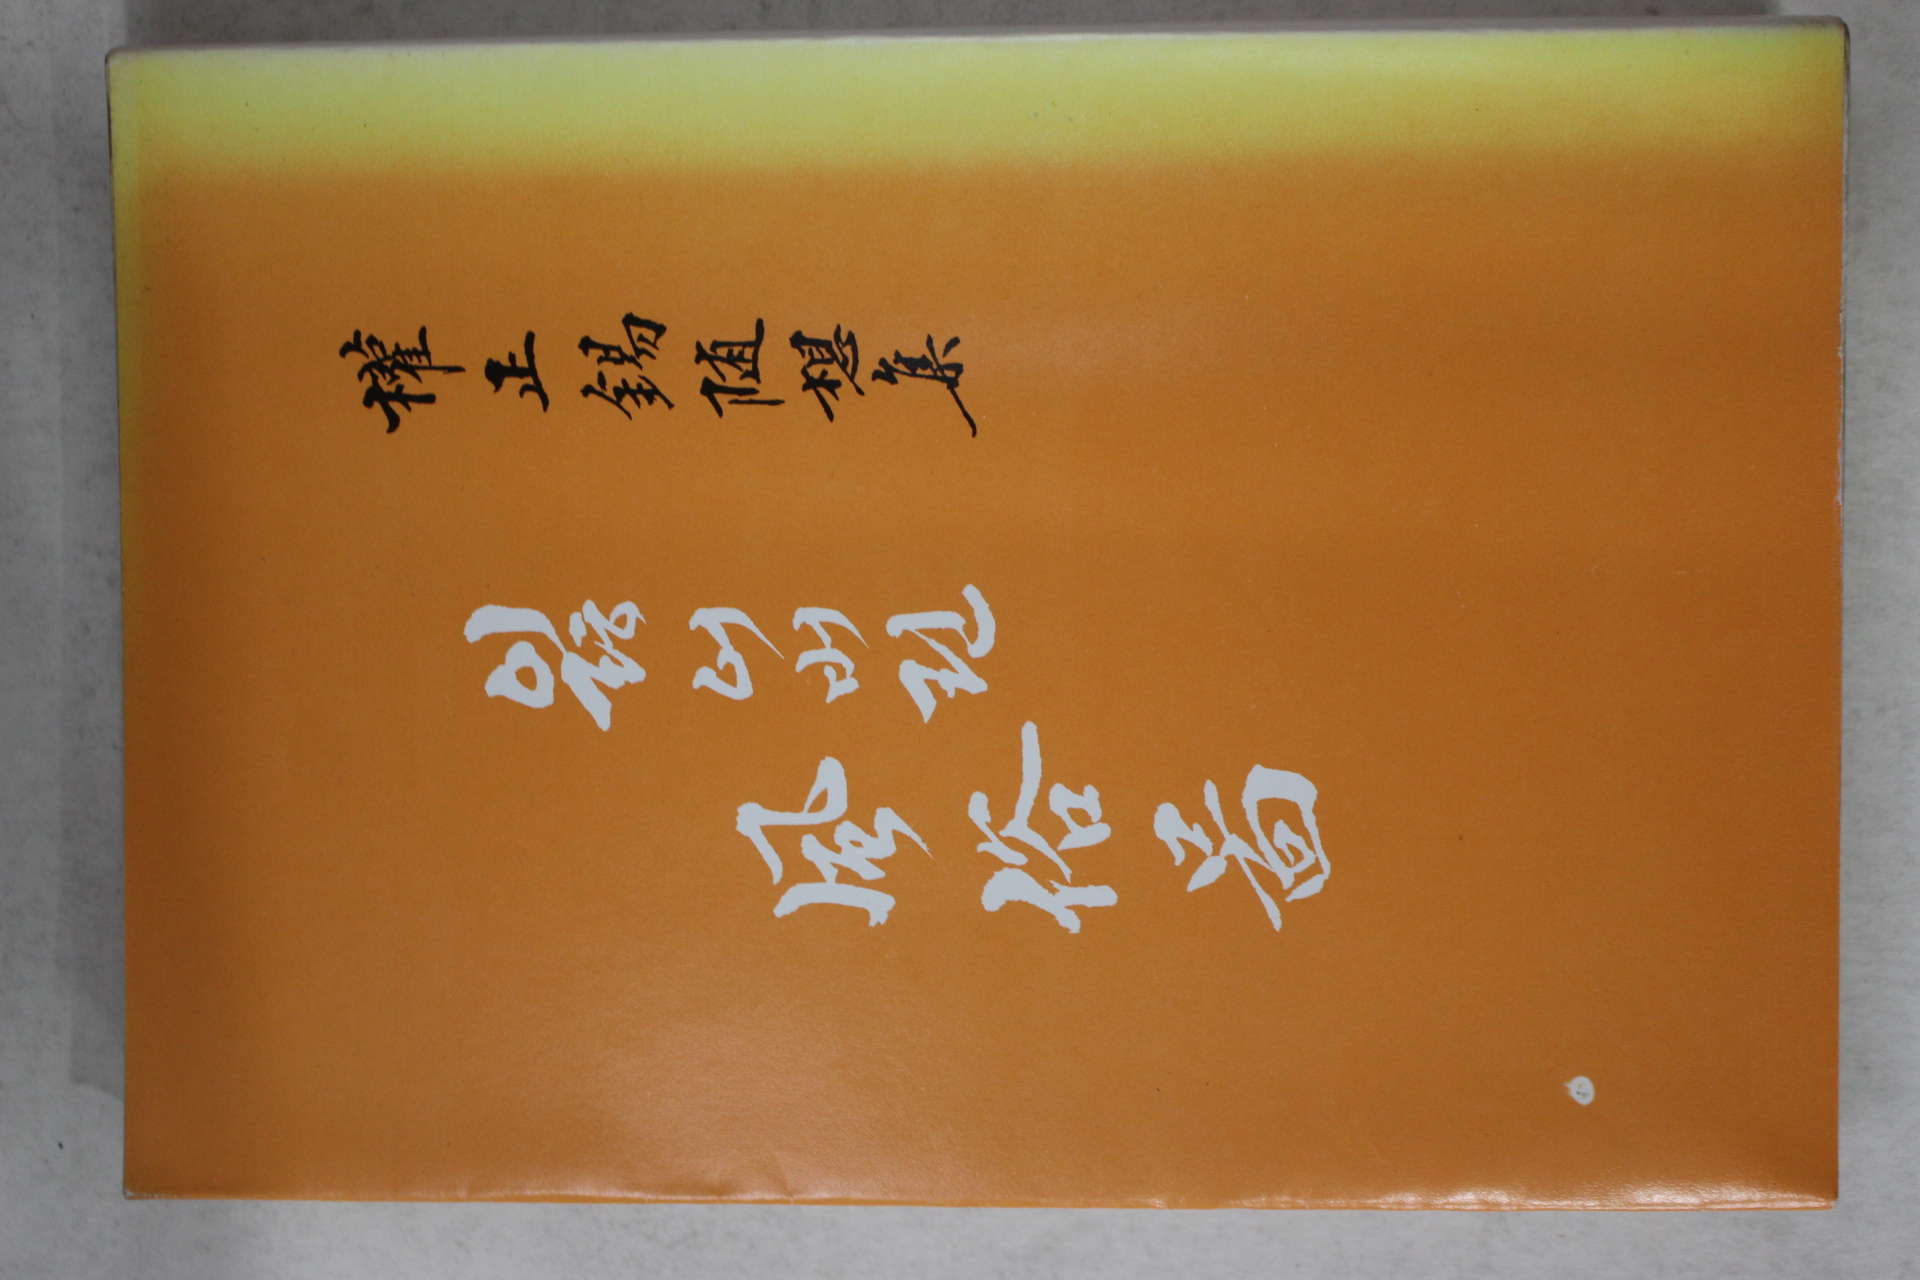 權正錫随想集
잃어버린
風俗圖